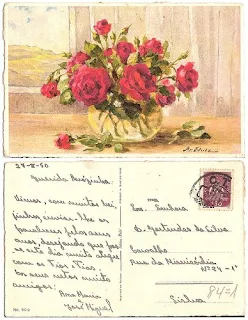 28-X-50
Querida Avózinha
Vimos, com muitos bei-
jinhos enviar-lhe os
parabens pelos seus
anos, desejando que pas-
se este dia muito alegre
com os Tios e Tias.
dos seus netos muito
amigos:
Ana Maria
José Miguel
Ex.ma Senhora
D. Gertrudes da Silva
Carvalho
Rua da Misericórdia
Nº 24-1º
Lisboa
84=1